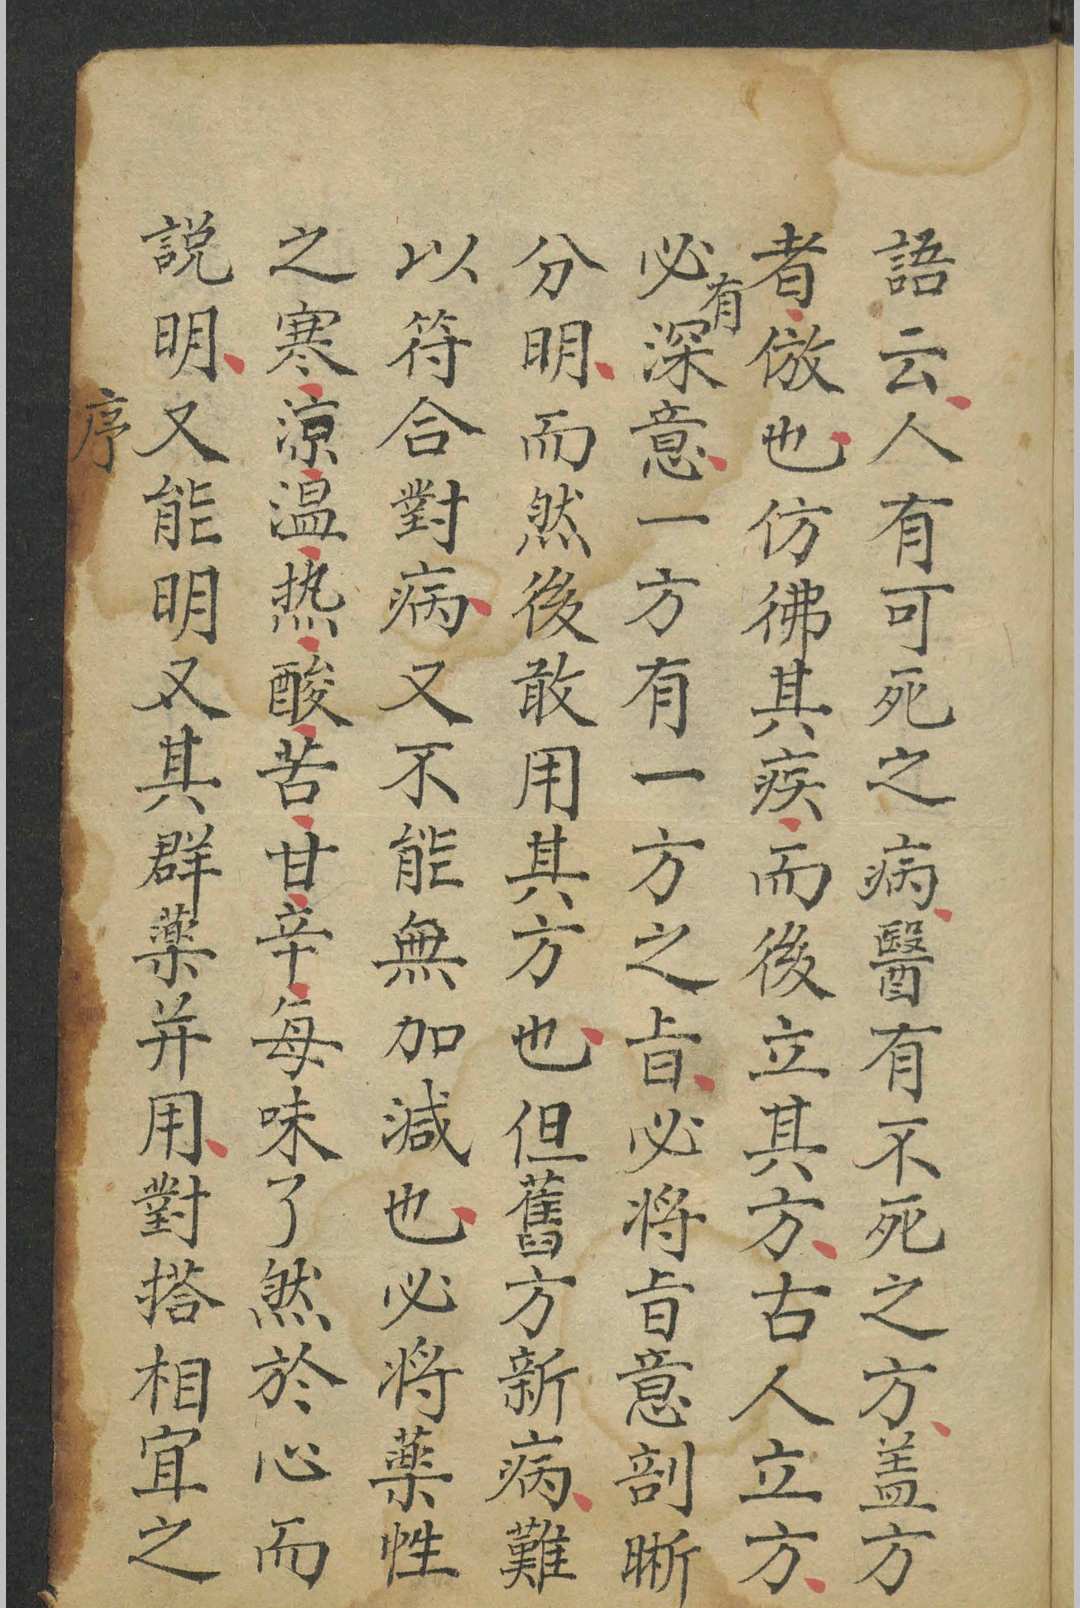 語云人有可死之病醫有不死之方盖方
者倣也仿彿其疾而後立其方古人立方
必有深意一方有一方之旨必将旨意剖晰
分明而然後敢用其方也但舊方新病難
以符合對病又不能無加減也必将藥性
之寒涼温热酸苦甘辛每味了然於心而
説明又能明又其群藥并用對搭相宜之
序